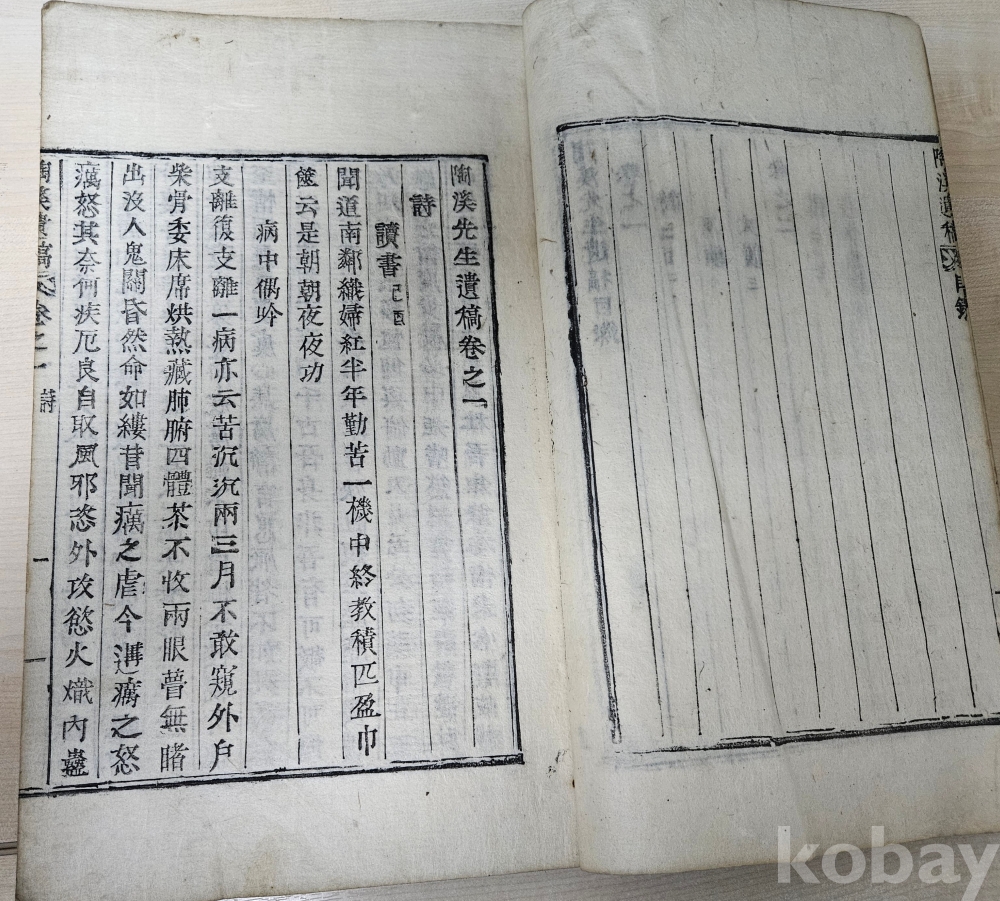 陶溪遺稿 目錄
陶溪先生遺稿卷之一
詩
讀書 己酉
聞道南鄰織婦紅半年勤苦一機中終教積匹盈巾
篋云是朝朝夜夜功
病中偶吟
支離復支離一病亦云苦沉沉兩三月不敢窺外戶
柴骨委床席烘熱藏肺腑四體茶不收兩眼瞢無睹
出沒人鬼關昏然命如縷昔聞癘之虐今遘癘之怒
癘怒其奈何疾厄良自取風邪恣外攻慾火熾內蠱
陶溪遺稿 卷之一 詩 一
kobay